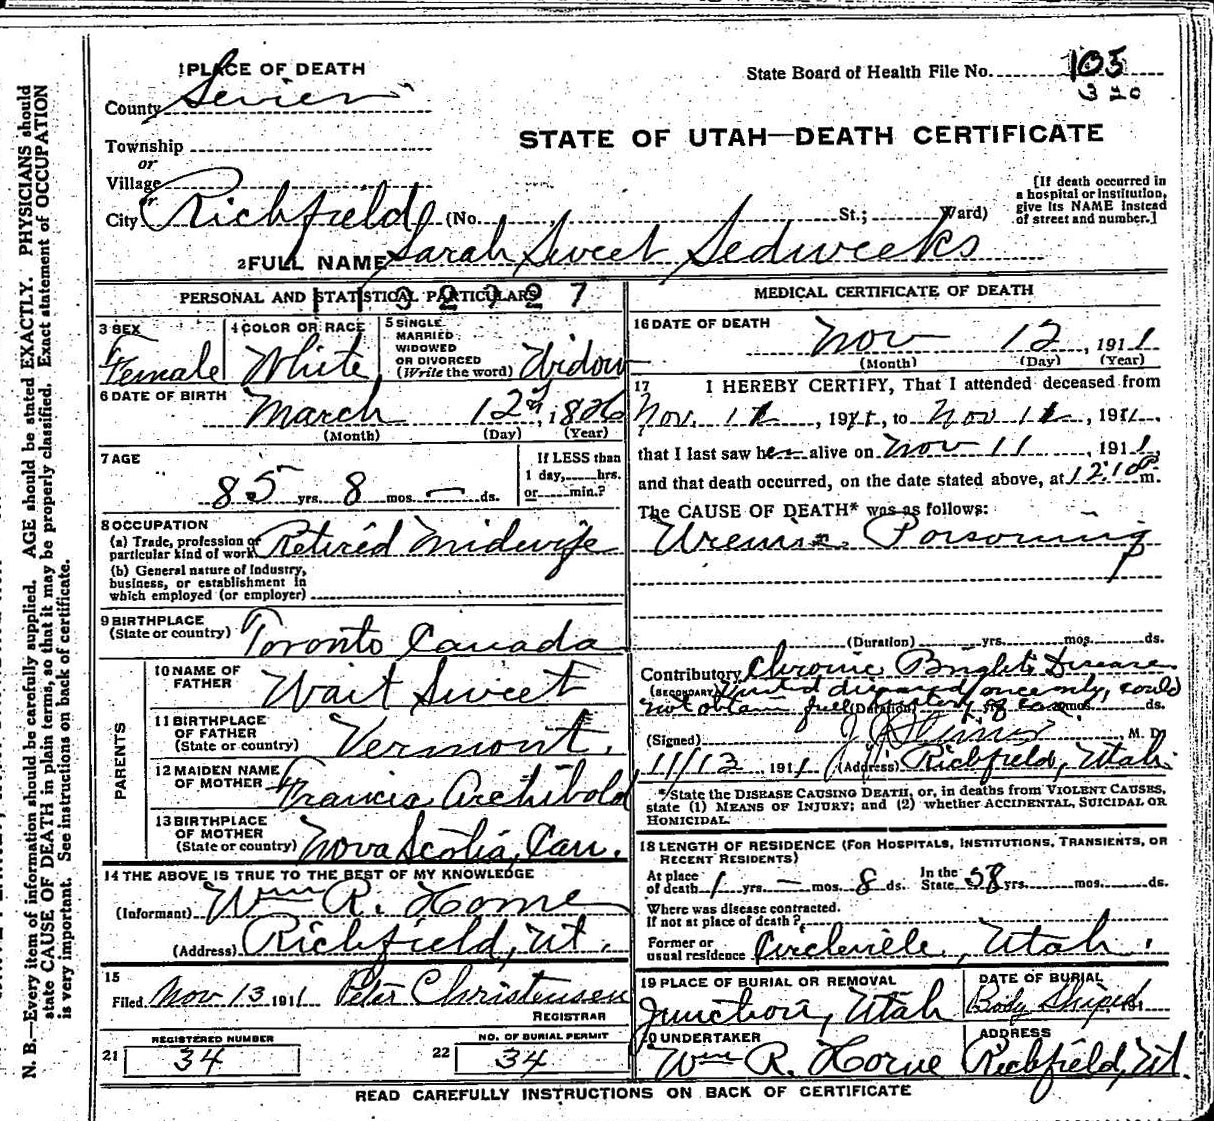 1 PLACE OF DEATH
County Sevier
State Board of Health File No. 105
320
STATE OF UTAH—DEATH CERTIFICATE
Township
or
Village
or
City Richfield (No. St.; Ward)
[If death occurred in
a hospital or institution,
give its NAME instead
of street and number.]
2 FULL NAME Sarah Sweet Sedweeks
PERSONAL AND STATISTICAL PARTICULARS
3 SEX
Female
4 COLOR OR RACE
White
5 SINGLE
MARRIED
WIDOWED
OR DIVORCED
(Write the word) Widow
6 DATE OF BIRTH
March 12, 1826
(Month) (Day) (Year)
7 AGE
85 yrs. 8 mos. — ds.
If LESS than
1 day, hrs.
or min.?
8 OCCUPATION
(a) Trade, profession or
particular kind of work Retired Midwife
(b) General nature of industry,
business, or establishment in
which employed (or employer)
9 BIRTHPLACE
(State or country) Toronto Canada
PARENTS
10 NAME OF
FATHER Wait Sweet
11 BIRTHPLACE
OF FATHER
(State or country) Vermont.
12 MAIDEN NAME
OF MOTHER Francis Archibold
13 BIRTHPLACE
OF MOTHER
(State or country) Nova Scotia, Can.
14 THE ABOVE IS TRUE TO THE BEST OF MY KNOWLEDGE
(Informant) Wm R. Horne
(Address) Richfield, Ut.
15
Filed Nov 13 1911 Peter Christensen
REGISTRAR
REGISTERED NUMBER
21 34
NO. OF BURIAL PERMIT
22 34
MEDICAL CERTIFICATE OF DEATH
16 DATE OF DEATH
Nov 12, 1911
(Month) (Day) (Year)
17 I HEREBY CERTIFY, That I attended deceased from
Nov. 1911, to Nov 1911,
that I last saw her alive on Nov 11, 1911,
and that death occurred, on the date stated above, at 12 10 m.
The CAUSE OF DEATH* was as follows:
Uremic Poisoning
(Duration) yrs. mos. ds.
Contributory Chronic Brights Disease
(SECONDARY) Visited diseased once only, could
not obtain full history of case.
(Duration) yrs. mos. ds.
(Signed) M. D.
11/13, 1911 (Address) Richfield, Utah.
*State the DISEASE CAUSING DEATH, or, in deaths from VIOLENT CAUSES,
state (1) MEANS OF INJURY; and (2) whether ACCIDENTAL, SUICIDAL OR
HOMICIDAL.
18 LENGTH OF RESIDENCE (FOR HOSPITALS, INSTITUTIONS, TRANSIENTS, OR
RECENT RESIDENTS)
At place
of death 1 yrs. — mos. 8 ds. In the
State 58 yrs. mos. ds.
Where was disease contracted.
If not at place of death?
Former or
usual residence Circleville, Utah.
19 PLACE OF BURIAL OR REMOVAL
Junction, Utah
DATE OF BURIAL
Body Shiped, 191
20 UNDERTAKER
Wm R. Horne
ADDRESS
Richfield, Ut.
READ CAREFULLY INSTRUCTIONS ON BACK OF CERTIFICATE
N. B.—Every item of information should be carefully supplied. AGE should be stated EXACTLY. PHYSICIANS should
state CAUSE OF DEATH in plain terms, so that it may be properly classified. Exact statement of OCCUPATION
is very important. See instructions on back of certificate.